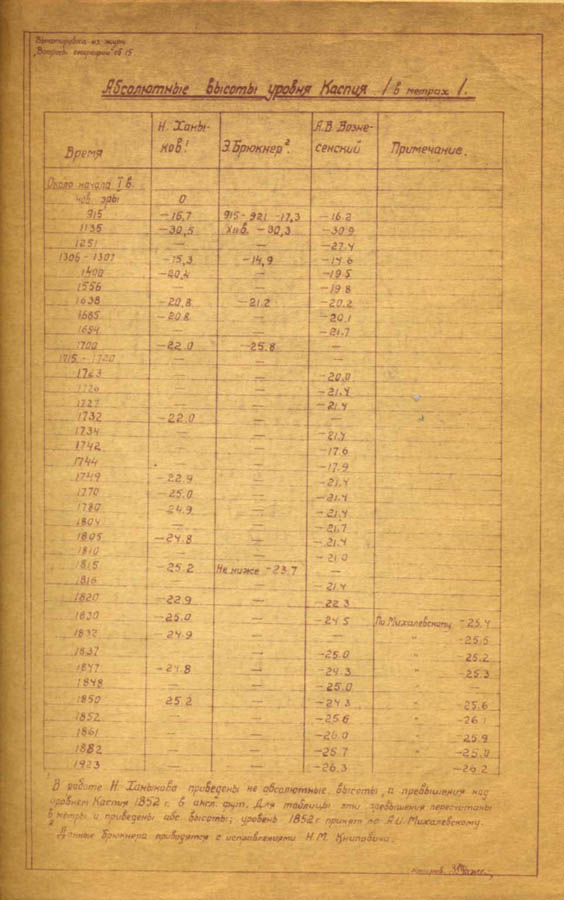 Выкопировка из журн.
"Вопросы географии" № 15
Абсолютные высоты уровня Каспия / в метрах /.
Время | Н. Ханы-ков¹ | Э. Брюкнер². | А.В. Возне-сенский | Примечание.
Около начала I в.
нов. эры 0
915 -16,7 915-921 -17,3 -16.2
1135 -30,5 XII в. -30,3 -30.9
1251 — — -27.4
1306-1307 -15,3 -14,9 -14.6
1400 -20,4 — -19.5
1556 — — -19.8
1638 -20,8 -21.2 -20.2
1685 -20.8 — -20.1
1694 — — -21.7
1700 -22.0 -25.8 —
1715-1720 — — —
1763 — — -20.0
1726 — — -21.4
1727 — — -21.4
1732 -22.0 — —
1734 — — -21.4
1742 — — -17.6
1744 — — -17.9
1749 -22.9 — -21.4
1770 -25.0 — -21.4
1780 24.9 — -21.4
1804 — — -21.7
1805 -24.8 — -21.4
1810 — — -21.0
1815 -25.2 Не ниже -23.7
1816 — -21.4
1820 -22.9 — -22.3
1830 -25.0 — -24.5 По Михалевскому -25.4
1832 24.9 — — " -25.5
1837 — — -25.0 " -25.2
1847 -24.8 — -24.3 " -25.3
1848 — — -25.0 " —
1850 25.2 — -24.3 " -25.6
1852 — — -25.6 " -26.1
1861 — — -26.0 " -25.9
1882 — — -25.7 " -25.0
1923 — — -26.3 -26.2
¹ В работе Н. Ханыкова приведены не абсолютные высоты, а превышения над
уровнем Каспия 1852 г. в англ. фут. Для таблицы эти превышения пересчитаны
в метры и приведены абс. высоты; уровень 1852 г. принят по А.И. Михалевскому.
² Данные Брюкнера приводятся с исправлениями Н.М. Книповича.
копиров.